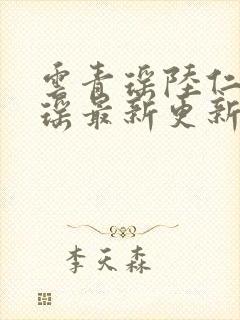 雲青瑶陸仁
瑶最新更新
李天森